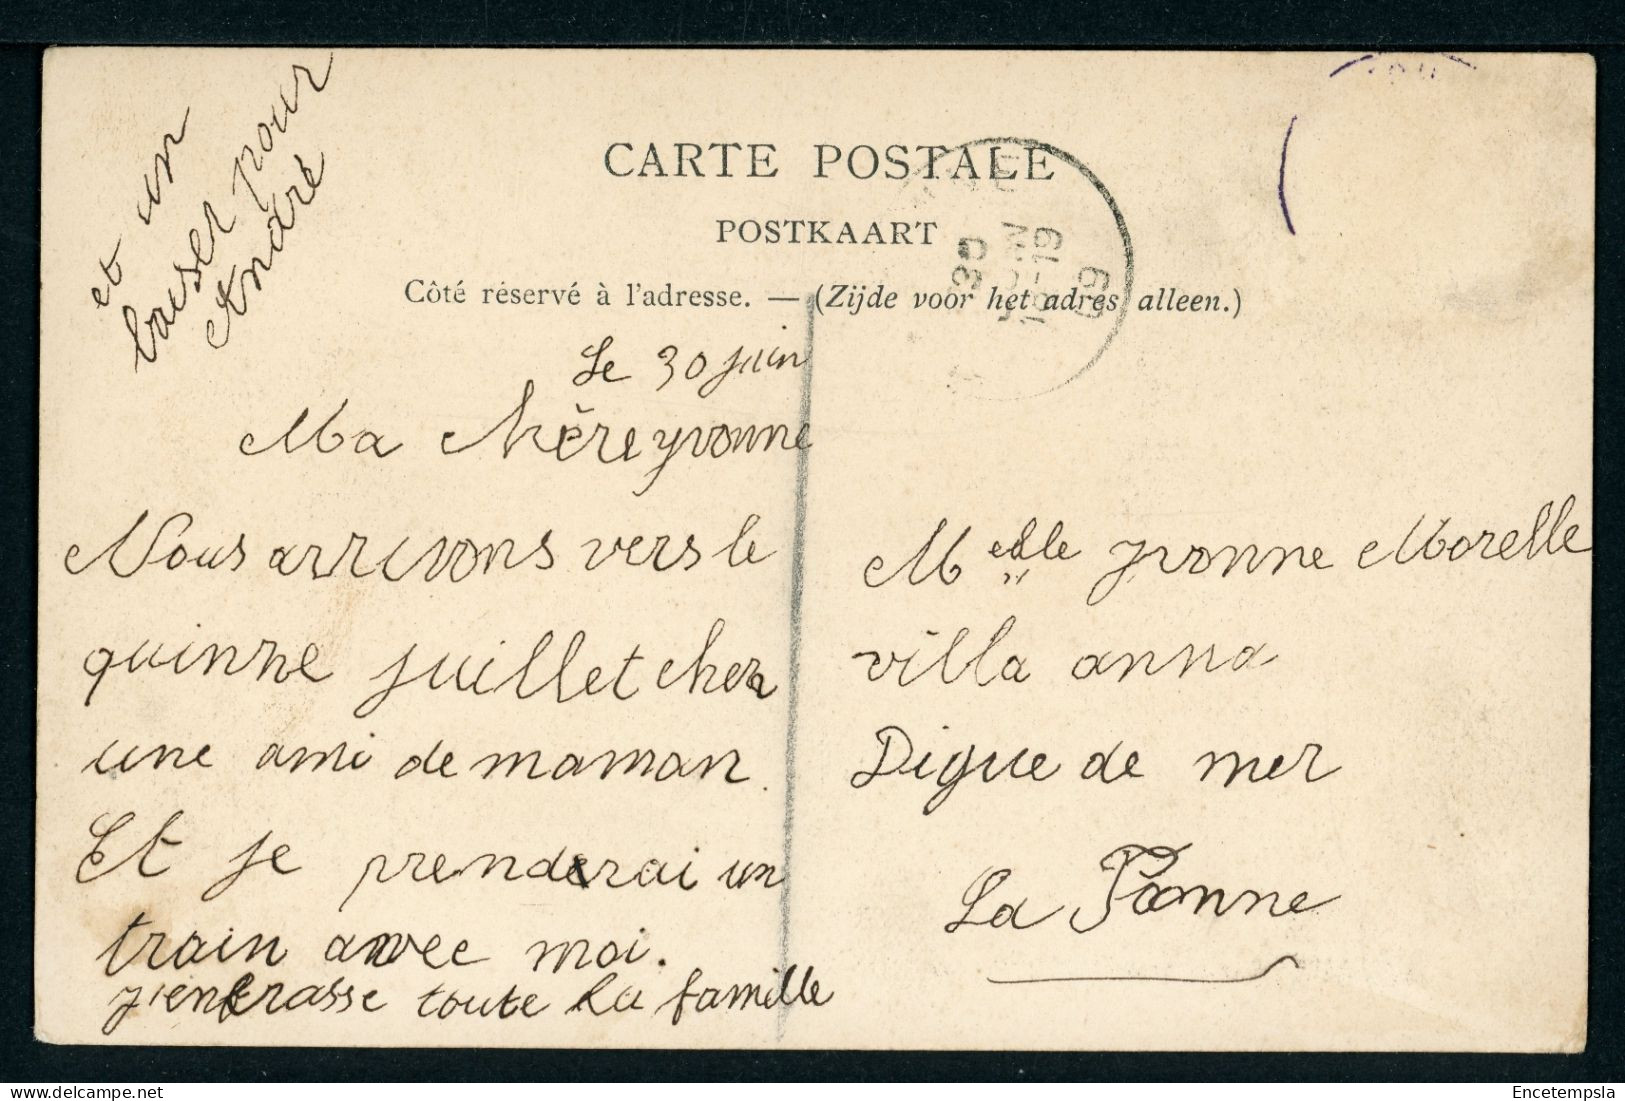 et un
baiser pour
André
CARTE POSTALE
POSTKAART
Côté réservé à l'adresse. — (Zijde voor het adres alleen.)
30
09
Le 30 juin
Ma chère yvonne
Nous arrivons vers le
quinne juillet cher
une ami de maman
Et je prenderai un
train avec moi.
j'enbrasse toute la famille
Melle yvonne Morelle
villa anna
Digue de mer
La Panne
Encetempsla